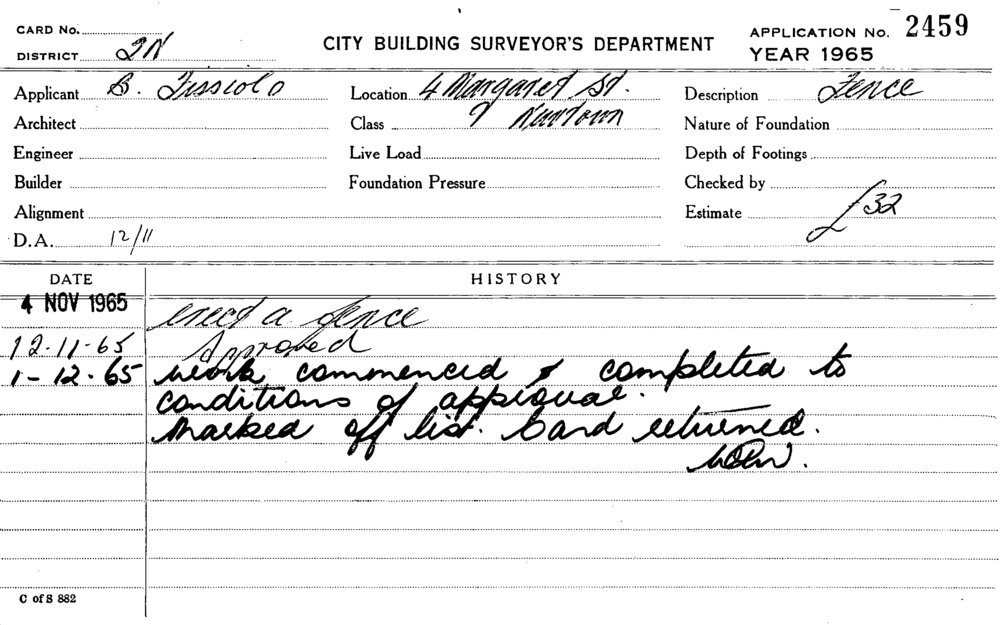 CARD No.
DISTRICT 2N
CITY BUILDING SURVEYOR'S DEPARTMENT
APPLICATION No. 2459
YEAR 1965
Applicant B. Location 4 Margaret St. Description Fence
Architect Class Newtown Nature of Foundation
Engineer Live Load Depth of Footings
Builder Foundation Pressure Checked by
Alignment Estimate £32
D.A. 12/11
DATE HISTORY
4 NOV 1965 erect a fence
12-11-65 Approved
1-12-65 work commenced & completed to
conditions of approval.
Marked off list. Card returned.
C of S 882